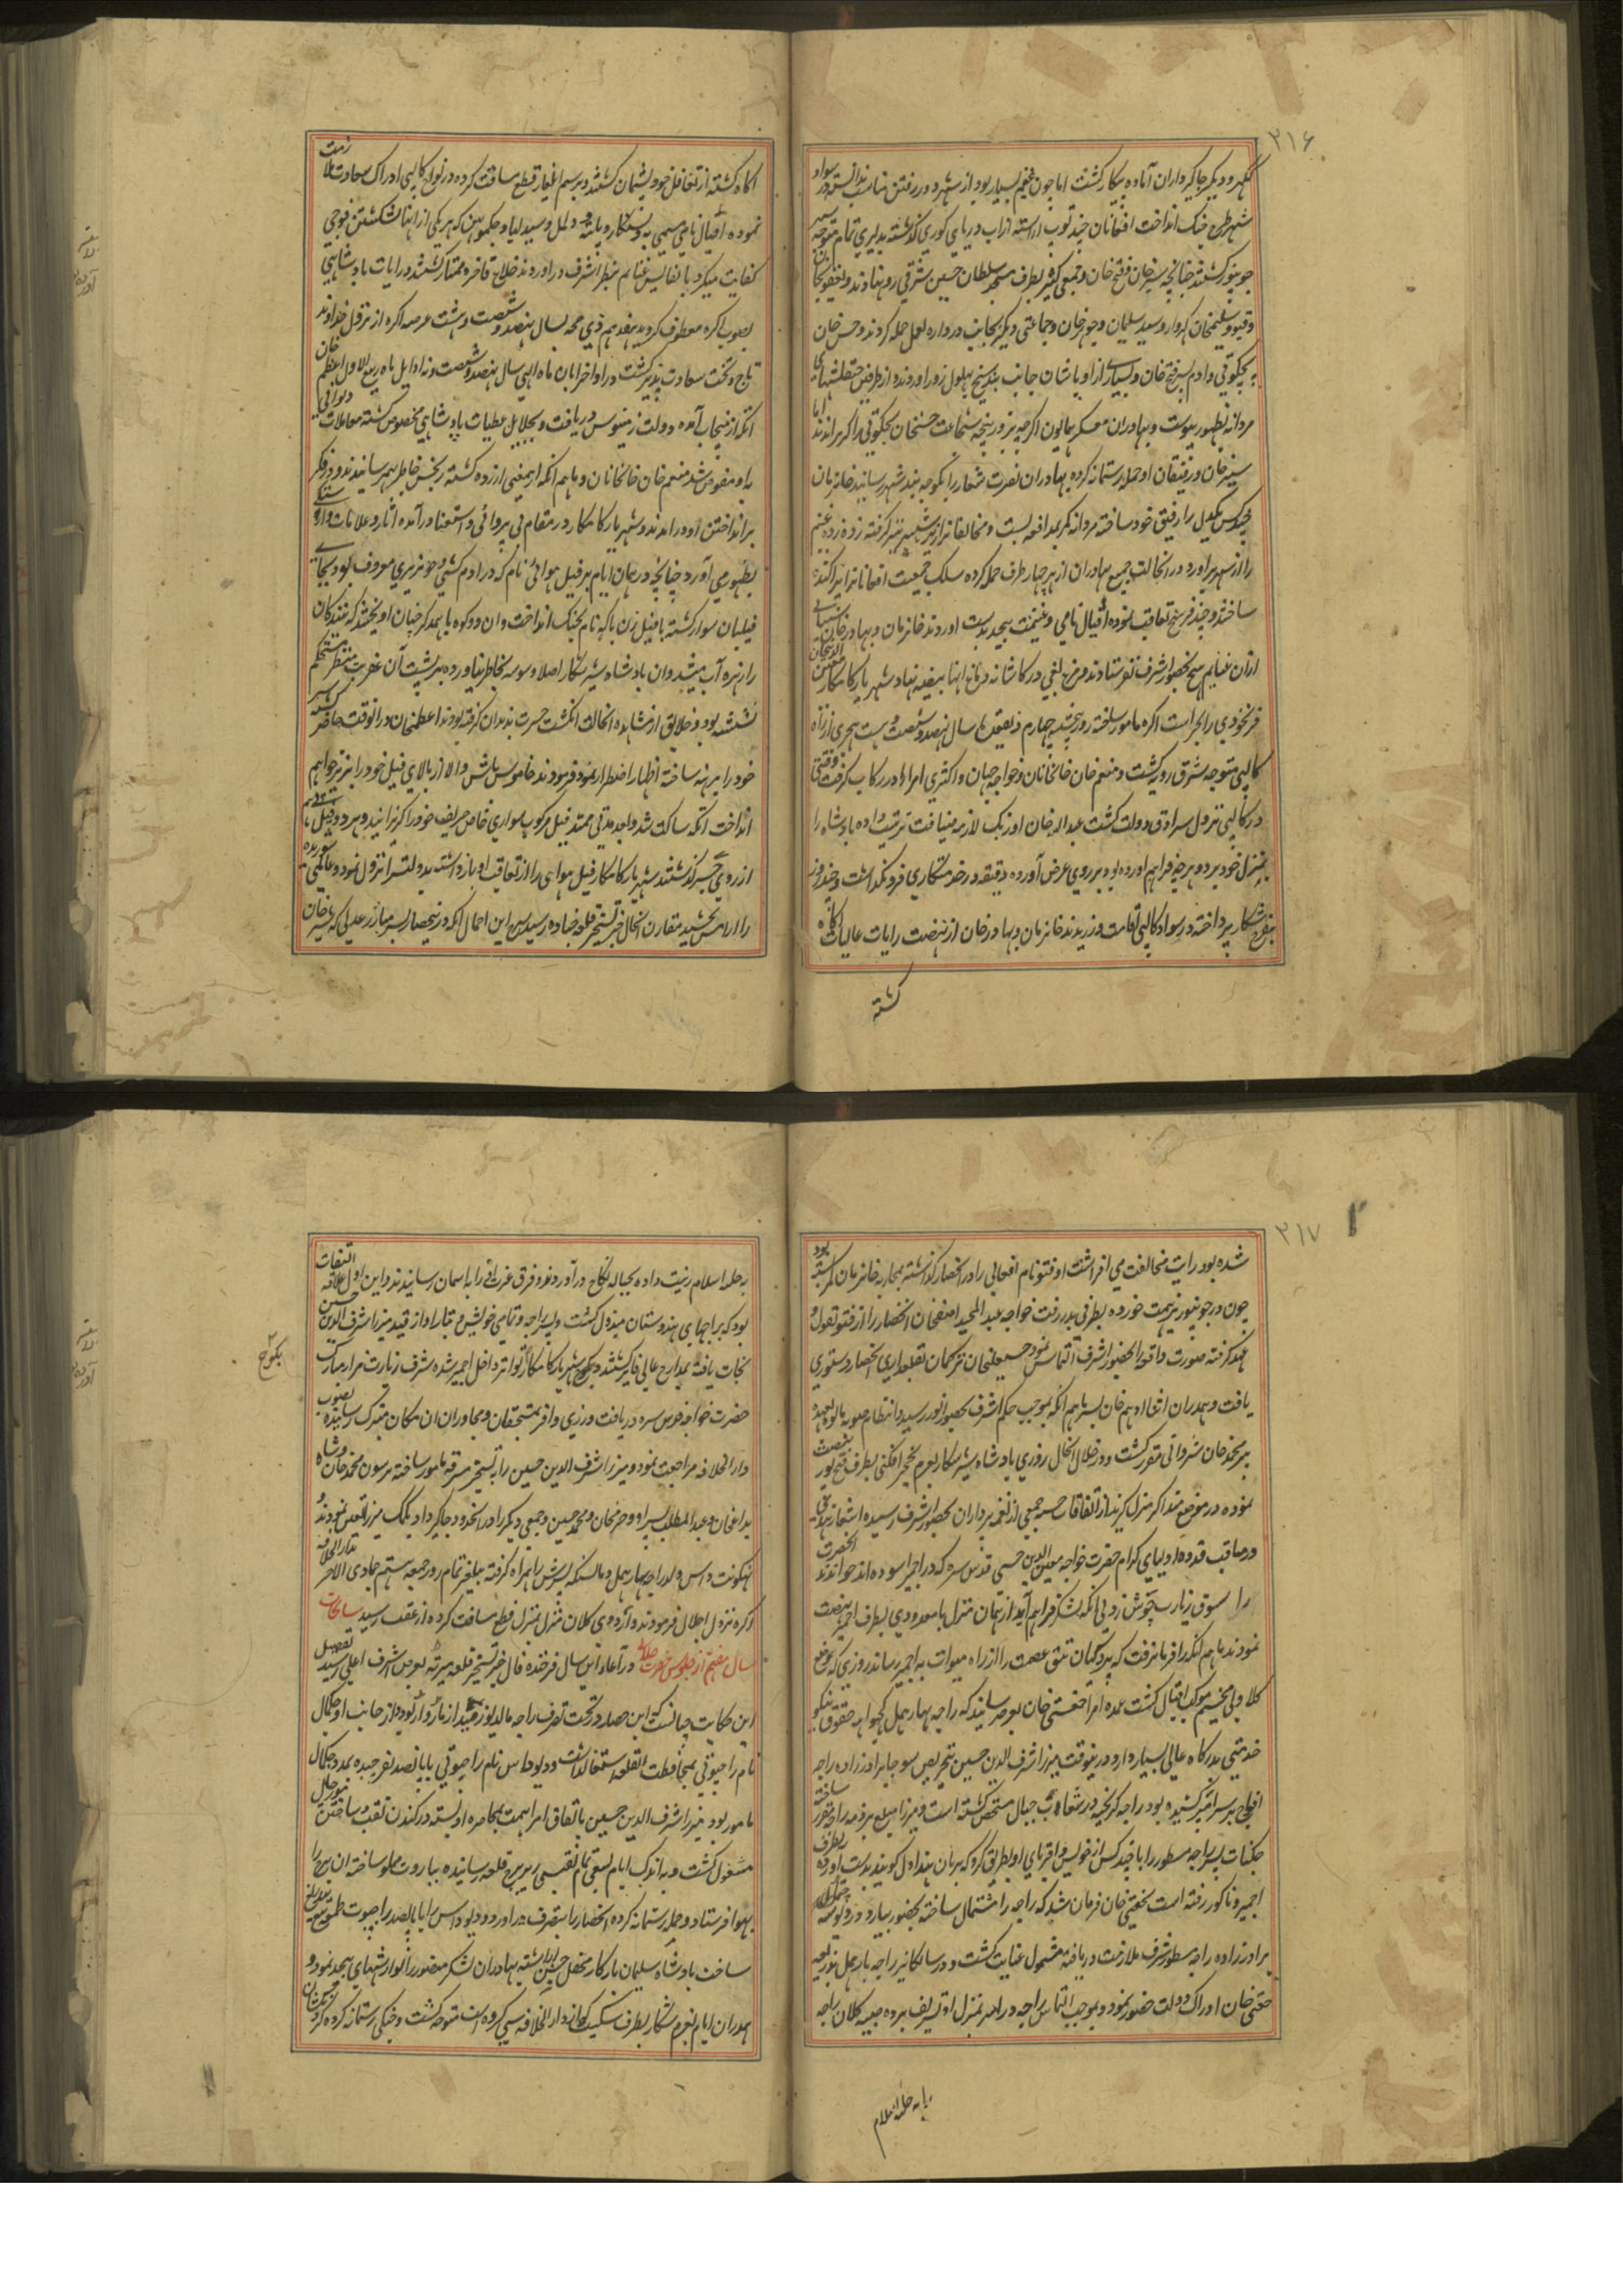 ۲۱۶
ککهر و دیکر جاکیرداران آماده پیکار کشتند اما چون غنیم بسیار بود از شهر و در رفتن مناسب ندانسته در سواد
شهر طرح جنک انداخت افغانان چند توپ اراسته از اب دریای کوری کذشته بدلیری تمام متوجه
جونپور کشتند چنانچه شیر خان و فتح خان و جمعی کثیر بطرف مسجد سلطان حسین شرقی رو نهادند و یعقوب خان
و فتو و سلیمخان کروار و سید سلیمان و جوهر خان و جماعتی دیکر بجانب دروازه لعل حمله کردند و حسن خان
بچکوتی و ادم پسر فتح خان و بسیاری از اوباشان جانب بند شیخ بهلول زور اوردند و از طرفین چپقلشهای
مردانه بظهور پیوست و بهادران معسکر همایون اکرچه بزور پنجه شجاعت حسنخان بچکوتی را کریزاندند اما
شیر خان و رفیقان او حمله رستمانه کرده بهادران نصرت شعار را بکوچه بند شهر رسانیدند خانزمان
یکدل را رفیق خود ساخته مردانه کمر بمدافعه بست و مخالفانرا از تیر شمشیر تیز کرفته زده زده غنیم
را از شهر براورد در انحالت جمیع بهادران از هر چهار طرف حمله کرده سلک جمعیت افغانانرا پراکنده
ساختند و چند فرسخ تعاقب نموده افیال نامی و غنیمت بیحد بدست اوردند خانزمان و بهادر خان
ازان غنایم هیچ بحضور اشرف نفرستادند و مرغ بغی در کاشانه دماغ اینها بیضه نهاد شهریار کامکار
فرنخودی را بحراست اکره مامور ساخته روز پنجشنبه چهارم ذیقعده سال نهصد و شصت و هشت هجری از راه
کالپی متوجه شرق رویه کشت و منعم خان خانخانان و خواجه جهان و اکثری امراء در رکاب کرفت وقتی
در کالپی نزول سرادق دولت کشت عبدالله خان اوزبک لازمه ضیافت ترتیب داده پادشاه را
بمنزل خود برد و هر چه فراهم اورده بود بر روی عرض آورده دقیقه در خدمتکاری فرو نکذاشت و چند روز
بتفرج شکار پرداخته در سواد کالپی اقامت ورزیدند خانزمان و بهادر خان از نهضت رایات عالیات اکاه
کشته
اکاه کشته از تغافل خود پشیمان کشتند و برسم ایلغار قطع مسافت کرده در نواح کالپی ادراک سعادت ملازمت
نموده افیال نامی مسمی به دستنکار و پلته و دلیل و سبدلیا و جکموهن که هر یکی از اینها لشکشکن فوجی
کفایت میکرد با نفایس غنایم بنظر اشرف دراوردند خلاع فاخره ممتاز کشتند و رایات بادشاهی
بصوب اکره معطوف کردید هفدهم ذی حجه بسال نهصد و شصت و هشت عرصه اکره از نزول خداوند
تاج و تخت سعادت پذیر کشت در اواخر ابان ماه الهی سال نهصد و شصت و نه اوایل ماه ربیع الاول اعظم خان
اتکه از پنجاب آمده دولت زمینبوس دریافت و بجلایل عطیات پادشاهی مخصوص کشته معاملات دیوانی
باو مفوض شد منعم خان خانخانان و ماهم انکه ازینمعنی ازرده کشته رنجش خاطر بهم رسانیدند و در فکر
برانداختن او درامدند و شهریار کامکار در مقام بی پروائی و استغنا درآمده اثار و علامات وارستکی
بظهور می آورد چنانچه در همان ایام بر فیل هوائی نام که در ادم کشی و خونریزی معروف بود بجای
فیلبان سوار کشته با فیل رن باکه نام بجنک انداخت و ان دو کوه با یکدیکر چنان اویختند که بینندکان
را زهره آب میشد وان پادشاه شیر شکار اصلا وسوسه بخاطر نیاورده بر پشت آن عفریت منظر مستحکم
نشسته بود و خلایق از مشاهده انحالت انکشت حیرت بدندان کرفته بودند اعظمخان در انوقت حاضر کشته سر
خود را برهنه ساخته اظهار اضطرار نمود فرمودند خاموش باش والا از بالای فیل خود را بزیر خواهم
انداخت اتکه ساکت شد و بعد مدتی ممتد فیل مرکوب سواری خاص حریف خود را کریزانید و هر دو فیل
از روی جسر کذشتند شهریار کامکار فیل هوائی را از تعاقب او باز داشته بدولتسرا نزول نمود و عالمی
را ارامش بخشید مقارن انحال خبر تسخیر قلعه چناده رسید شرح این اجمال انکه در نیحصار پسر مبارز عدلی که شیر خان
۲۱۷
شده بود رایت مخالفت می افراشت او فتو نام افغانی را در انحصار کذاشته بمحاربه خانزمان کمر بسته بود
چون در جونپور هزیمت خورده بطرفی بدر رفت خواجه عبدالمجید اصفخان انحصار را از فتو بقول و
عهد کرفته صورت واقعه را بحضور اشرف التماس نمود حسینعلیخان ترکمان بقلعداری انحصار دستوری
یافت و همدران اثنا ادهم خان پسر ماهم انکه بموجب حکم اشرف بحضور انور رسید و انتظام صوبه مالوه بعهده
پیر محمد خان شروانی مقرر کشت و در خلال انحال روزی بادشاه شیر شکار بعزم نخجیر افکنی بطرف فتح پور نهضت
نموده در موضع منداکر منزل کزیدند از اتفاقات حسنه جمعی از نغمه پردازان بحضور اشرف رسیده اشعار هندی
در مناقب قدوه اولیای کرام حضرت خواجه معین الدین حسن قدس سره که در اجمیر اسوده اند خواندند انحضرت
را شوق زیارت جوش زد بی انکه لشکر فراهم آید از همان منزل با معدودی بطرف اجمیر نهضت
نمودند ماهم انکه را فرمان رفت که پردکیان تتق عصمت را از راه میوات به اجمیر رساند روزی که موضع
کلاولی مخیم موکب اقبال کشت عمده امرا جغتی خان بعرض رسانید که راجه بهارهمل کچواهه حقوق نیکو
خدمتی بدرکاه عالی بسیار دارد و درینوقت میرزا شرف الدین حسین بتحریص سوجا برادرزاده راجه
افواج بر سر انبر کشیده بود راجه کریخته در شعاب جبال متحصن کشته است و میرزا مبلغ بر ذمه او مقرر ساخته
جکنات پسر راجه مسطور را با چند کس از خویش و اقربای او بطریق کرو که بزبان هند اول کویند بدست اورده بطرف
اجمیر و ناکور رفته است بجغتی خان فرمان شد که راجه را مشتمال ساخته بحضور بیارد و در دوسه جیمل
برادرزاده راجه مسطور شرف ملازمت دریافته مشمول عنایت کشت و در سانکانیر راجه بهارهمل بذریعه
جغتی خان ادراک دولت حضور نمود و بموجب التماس راجه در انبر بمنزل او تشریف برده صبیه کلان راجه
را به حلیه اسلام
به حلیه اسلام زینت داده بحباله نکاح درآوردند و فرق عزت اقربا باسمان رسانیدند و این اول علاقه التفات
بود که براجهای هندوستان مبذول کشت و پسر راجه و تمامی خویش و تبار او از قید میرزا شرف الدین حسین
نجات یافته بمدارج عالی فایز کشتند و بکوچ شهریار کامکار متواتر داخل اجمیر شده شرف زیارت مزار مبارک
بکوچ ۲
حضرت خواجه قدس سره دریافت و رزی وافر بمستحقان و مجاوران ان مکان متبرک رسانیده بصوب
دارالخلافه مراجعت نمود و میرزا شرف الدین حسین را به تسخیر میرته مامور ساخته مرسون محمد خان و شاه
بداغخان و عبدالمطلب پسر او و خرمخان و محمد حسین و جمعی دیکر را در انحدود جاکیر داد بکمک میرزا تعین نمودند و
بهکونت داس ولد راجه بهارهمل و مانسنکه پسرش را همراه کرفته بایلغار تمام روز جمعه هشتم جمادی الاخر بدارالخلافه
اکره نزول اجلال فرمودند و اردوی کلان منزل بمنزل قطع مسافت کرده از عقب رسید سانحات
سال هفتم از جلوس حضرت جلالی در آغاز این سال فرخنده فال خبر تسخیر قلعه میرته بعرض اشرف اعلی رسید تفصیل
این حکایت چنانست که این حصار در تحت تصرف راجه مالدیو زمیندار ماروار بود و از جانب او جکمال
نام راجپوتی بمحافظت انقلعه اشتغال داشت و دیوداس نام راجپوتی با پانصد نفر جیده بمدد جکمال
مامور بود میرزا شرف الدین حسین باتفاق امرا همت بمحاصره او بسته در کندن نقب و ساختن مورچال
مشغول کشت و به اندک ایام بسعی تمام نقبی زیر برج قلعه رسانیده بباروت مملو ساخته ان برج را
بهوا فرستاد و حمله رستمانه کرده انحصار را بتصرف دراورد و دیوداس را با پانصد راجپوت طعمه تیغ بیدریغ
ساخت بادشاه سلیمان بارکار محفل جشن اراسته بهادران لشکر منصور را انواع نوازشهای بیحد نمود و
همدران ایام بعزم شکار بطرف سکیت که از دارالخلافه سی کروه است متوجه کشت و جنکی رستمانه کرده